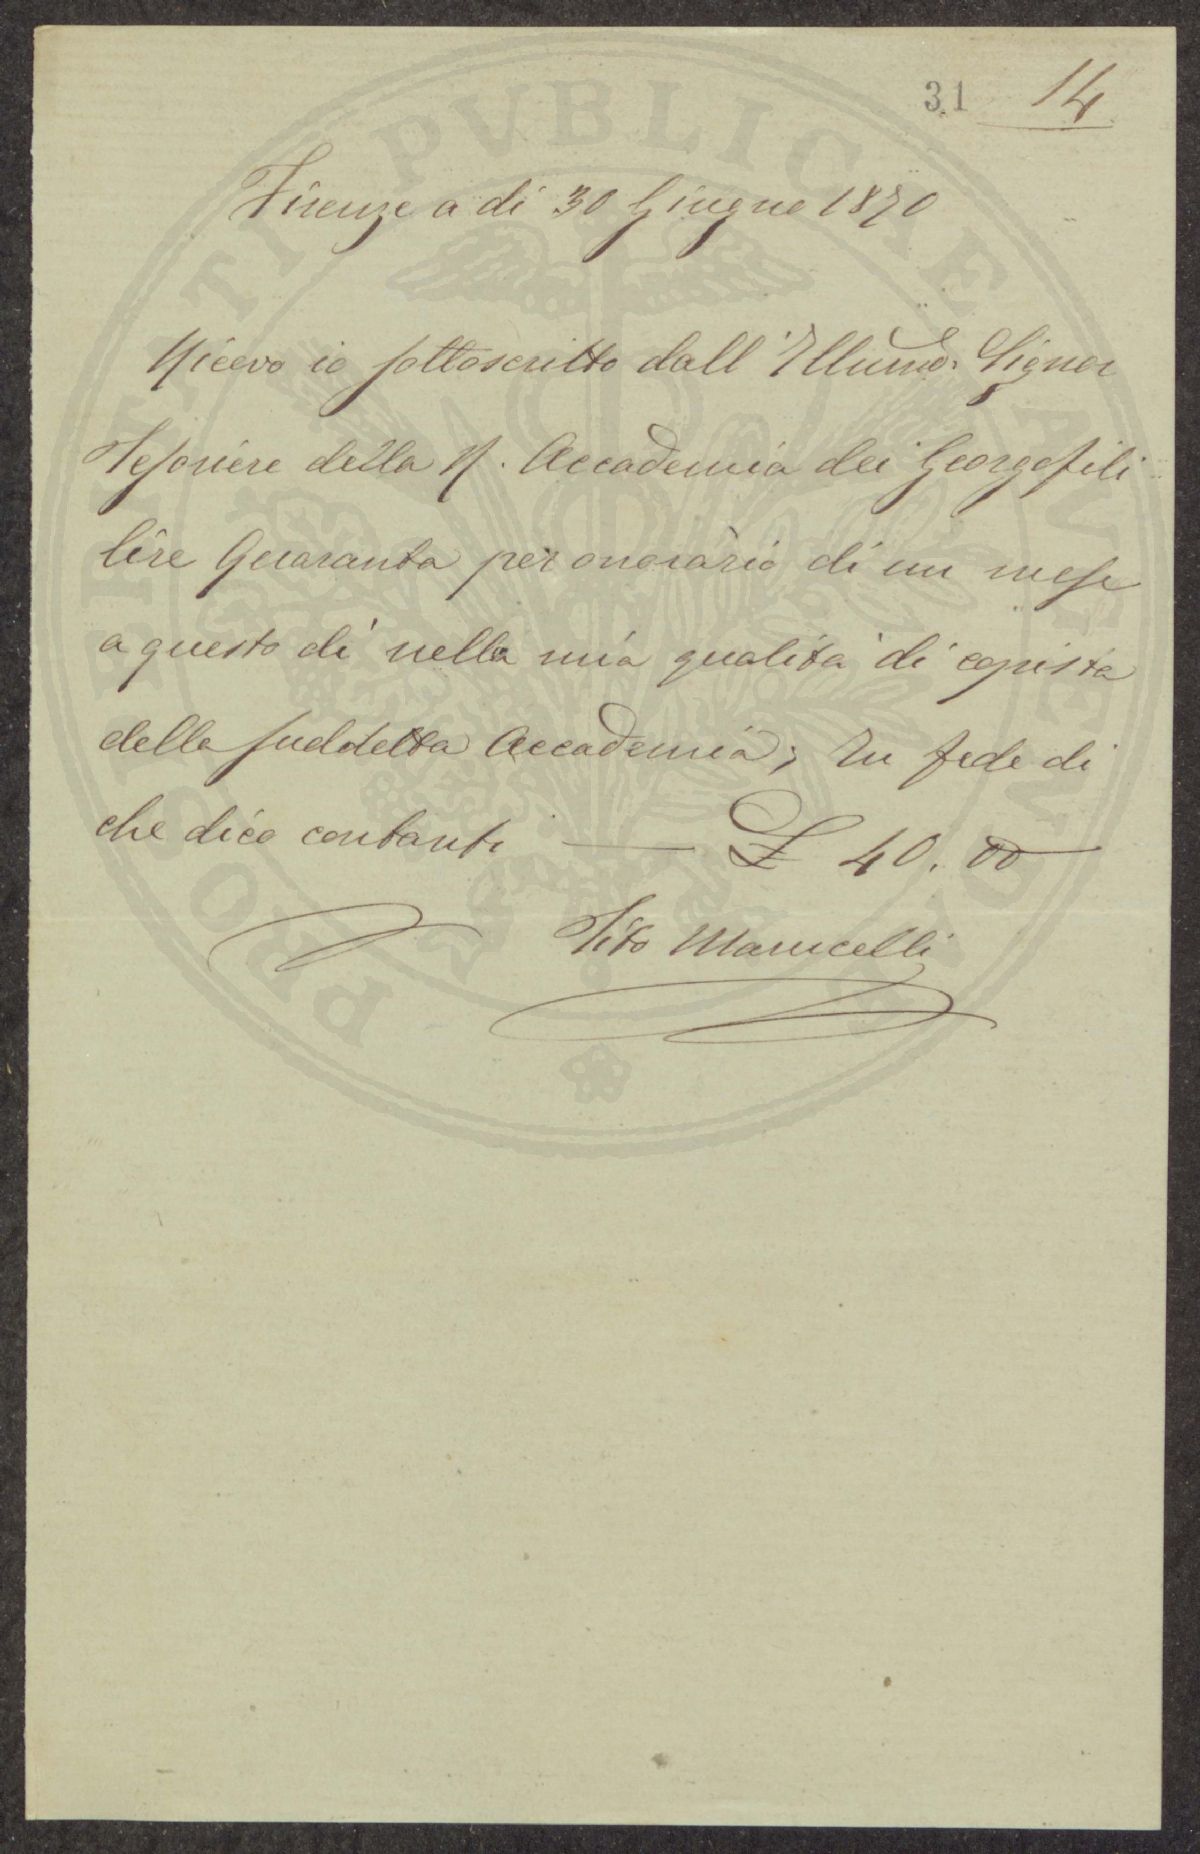 31 14
Firenze a di 30 Giugno 1870
Ricevo io sottoscritto dall'Illumo. Signor
Tesoriere della R. Accademia dei Georgofili
lire Quaranta per onorario di un mese
a questo dì nella mia qualità di copista
della suddetta Accademia; In fede di
che dico contanti — £ 40.00
Tito Marucelli
PROSPERITATI PVBLICAE AVGENDAE